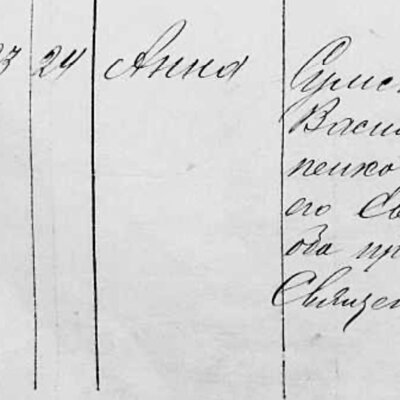 3 24 Анна Сумс
Васи
пенко
его Св
оба пр
Священ